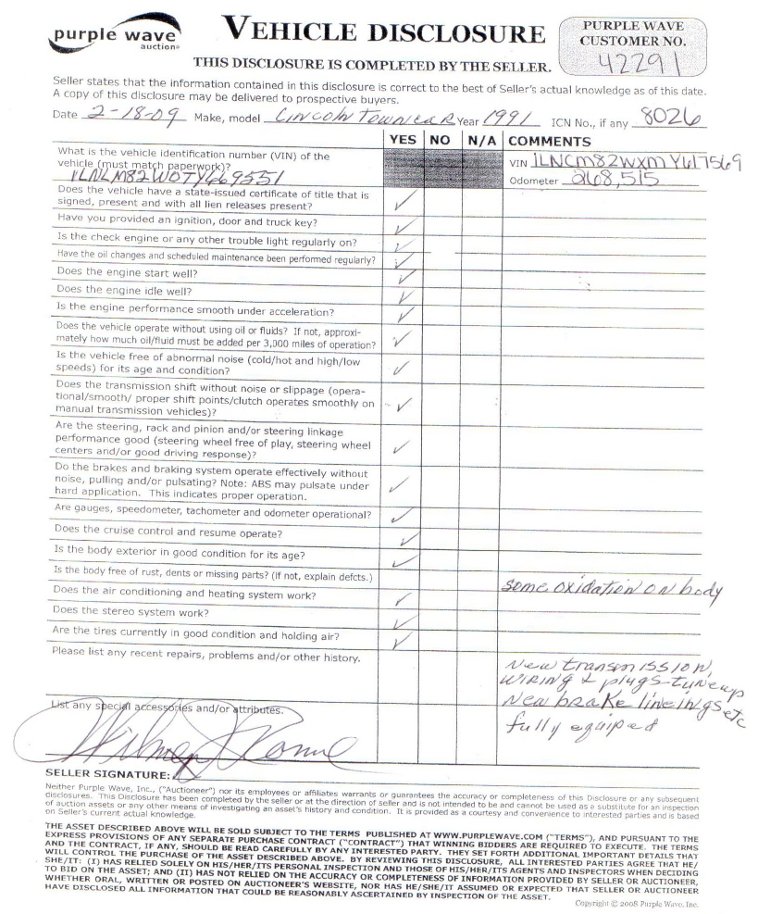 purple wave
auction®
VEHICLE DISCLOSURE
THIS DISCLOSURE IS COMPLETED BY THE SELLER.
PURPLE WAVE
CUSTOMER NO.
42291
Seller states that the information contained in this disclosure is correct to the best of Seller's actual knowledge as of this date.
A copy of this disclosure may be delivered to prospective buyers.
Date 2-18-09 Make, model Lincoln Towncar Year 1991 ICN No., if any 8026
YES NO N/A COMMENTS
What is the vehicle identification number (VIN) of the
vehicle (must match paperwork)?
1LNLM82W0TY669551
VIN 1LNCM82WXMY617569
Odometer 268,515
Does the vehicle have a state-issued certificate of title that is
signed, present and with all lien releases present? ✓
Have you provided an ignition, door and truck key? ✓
Is the check engine or any other trouble light regularly on? ✓
Have the oil changes and scheduled maintenance been performed regularly? ✓
Does the engine start well? ✓
Does the engine idle well? ✓
Is the engine performance smooth under acceleration? ✓
Does the vehicle operate without using oil or fluids? If not, approxi-
mately how much oil/fluid must be added per 3,000 miles of operation? ✓
Is the vehicle free of abnormal noise (cold/hot and high/low
speeds) for its age and condition? ✓
Does the transmission shift without noise or slippage (opera-
tional/smooth/ proper shift points/clutch operates smoothly on
manual transmission vehicles)? ✓
Are the steering, rack and pinion and/or steering linkage
performance good (steering wheel free of play, steering wheel
centers and/or good driving response)? ✓
Do the brakes and braking system operate effectively without
noise, pulling and/or pulsating? Note: ABS may pulsate under
hard application. This indicates proper operation. ✓
Are gauges, speedometer, tachometer and odometer operational? ✓
Does the cruise control and resume operate? ✓
Is the body exterior in good condition for its age? ✓
Is the body free of rust, dents or missing parts? (if not, explain defcts.) some oxidation on body
Does the air conditioning and heating system work? ✓
Does the stereo system work? ✓
Are the tires currently in good condition and holding air? ✓
Please list any recent repairs, problems and/or other history.
New transmission,
wiring & plugs-tuneup
New brake lineings etc
List any special accessories and/or attributes.
fully equiped
SELLER SIGNATURE: X
Neither Purple Wave, Inc., ("Auctioneer") nor its employees or affiliates warrants or guarantees the accuracy or completeness of this Disclosure or any subsequent
disclosures. This Disclosure has been completed by the seller or at the direction of seller and is not intended to be and cannot be used as a substitute for an inspection
of auction assets or any other means of investigating an asset's history and condition. It is provided as a courtesy and convenience to interested parties and is based
on Seller's current actual knowledge.
THE ASSET DESCRIBED ABOVE WILL BE SOLD SUBJECT TO THE TERMS PUBLISHED AT WWW.PURPLEWAVE.COM ("TERMS"), AND PURSUANT TO THE
EXPRESS PROVISIONS OF ANY SEPARATE PURCHASE CONTRACT ("CONTRACT") THAT WINNING BIDDERS ARE REQUIRED TO EXECUTE. THE TERMS
AND THE CONTRACT, IF ANY, SHOULD BE READ CAREFULLY BY ANY INTERESTED PARTY. THEY SET FORTH ADDITIONAL IMPORTANT DETAILS THAT
WILL CONTROL THE PURCHASE OF THE ASSET DESCRIBED ABOVE. BY REVIEWING THIS DISCLOSURE, ALL INTERESTED PARTIES AGREE THAT HE/
SHE/IT: (I) HAS RELIED SOLELY ON HIS/HER/ITS PERSONAL INSPECTION AND THOSE OF HIS/HER/ITS AGENTS AND INSPECTORS WHEN DECIDING
TO BID ON THE ASSET; AND (II) HAS NOT RELIED ON THE ACCURACY OR COMPLETENESS OF INFORMATION PROVIDED BY SELLER OR AUCTIONEER,
WHETHER ORAL, WRITTEN OR POSTED ON AUCTIONEER'S WEBSITE, NOR HAS HE/SHE/IT ASSUMED OR EXPECTED THAT SELLER OR AUCTIONEER
HAVE DISCLOSED ALL INFORMATION THAT COULD BE REASONABLY ASCERTAINED BY INSPECTION OF THE ASSET.
Copyright © 2008 Purple Wave, Inc.